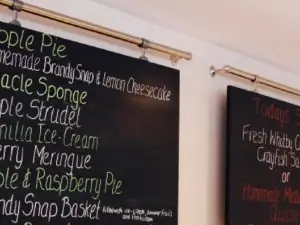 ople Pie
omemade Brandy Snap & Lemon Cheesecake
acle Sponge
ple Strudel
anilla Ice-Cream
erry Meringue
ple & Raspberry Pie
ndy Snap Basket
Today's
Fresh Whitby C
Crayfish Sa
or
Homemade Mea